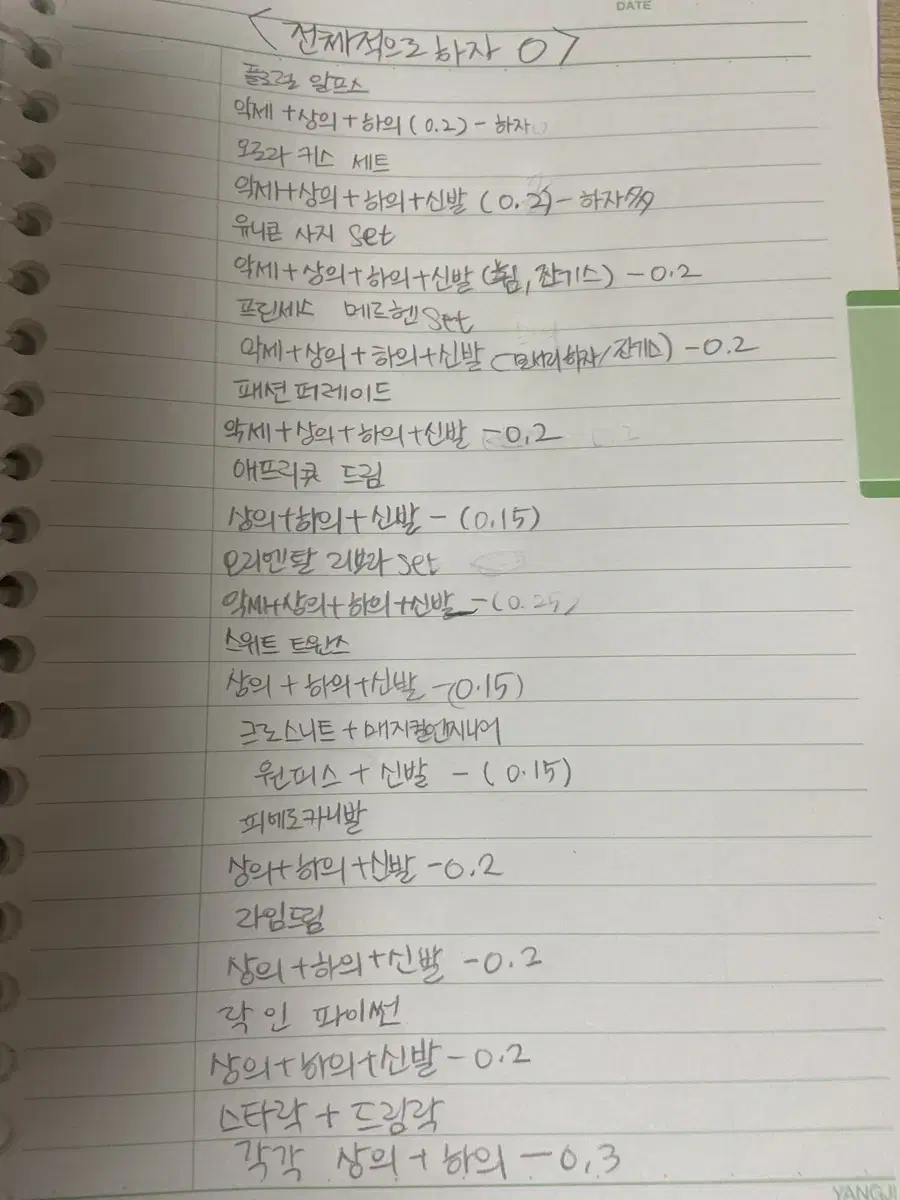 DATE
<전체적으로 하자 O>
플로럴 알프스
악세+상의+하의(0.2)-하자
오로라 키스 세트
악세+상의+하의+신발 (0.2)-하자多
유니콘 사지 set
악세+상의+하의+신발(휨,잔기스)-0.2
프린세스 메르헨set
악세+상의+하의+신발(모서리하자/잔기스)-0.2
패션퍼레이드
악세+상의+하의+신발-0.2
애프리콧 드림
상의+하의+신발-(0.15)
오리엔탈 리보라 set
악세+상의+하의+신발-(0.25)
스위트 트윈스
상의+하의+신발-(0.15)
크로스니트+매지컬엔지니어
원피스+신발-(0.15)
피에로카니발
상의+하의+신발-0.2
라임드림
상의+하의+신발-0.2
락인 파이썬
상의+하의+신발-0.2
스타락+드림락
각각 상의+하의-0.3
YANGJI